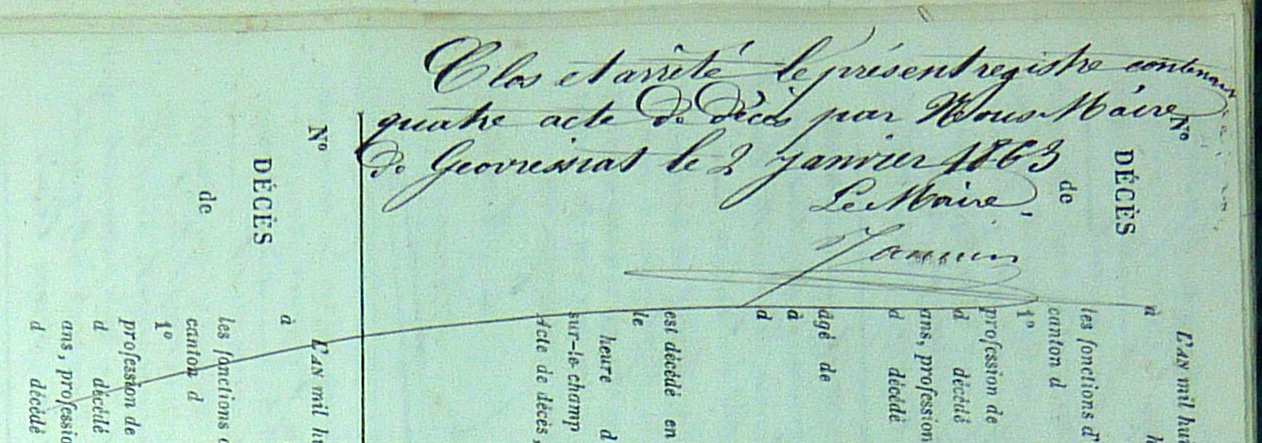 Clos et arrêté le présent registre contenant
quatre acte de décès par Nous Maire
de Geovressiat le 2 janvier 1863
Le Maire,
N°
DÉCÈS
de
à
L'AN mil hu
les fonctions d'
canton d
1°
profession de
d décédé
ans, profession
d décédé
âgé de
à
d
est décédé en
le
heure d
sur-le-champ
Acte de décès,
N°
DÉCÈS
de
à
L'AN mil hu
les fonctions d
canton d
1°
profession de
d décédé
ans, professio
d décédé